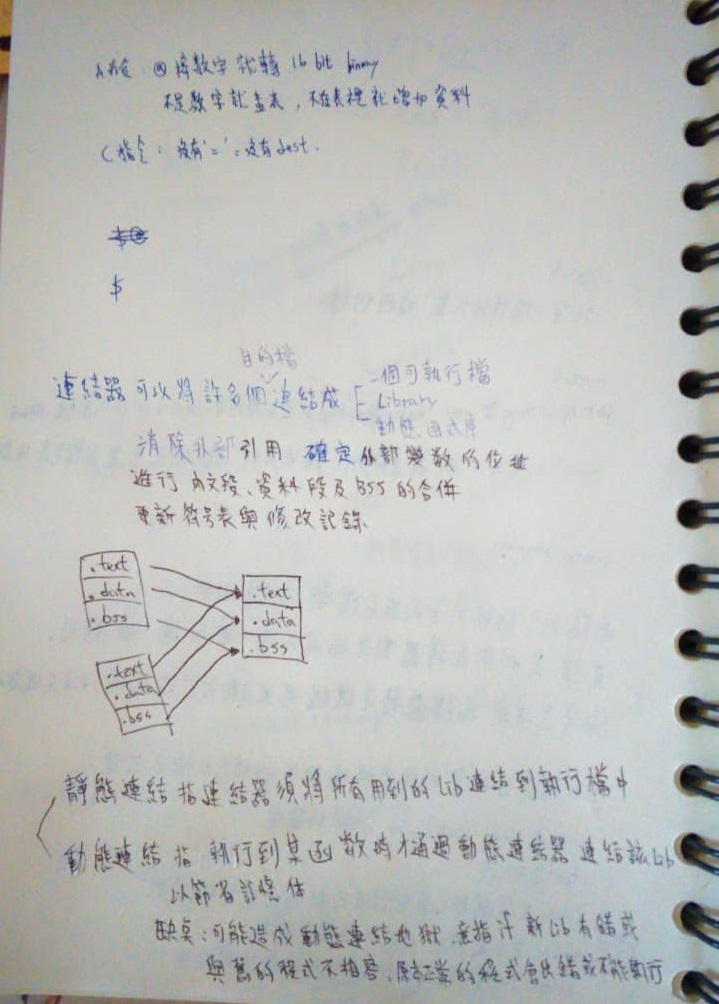 A指令: @接數字就轉 16 bit binary
不是數字就查表, 不在表裡就增加資料
C指令: 沒有'=' = 沒有dest.
$
目的檔
連結器可以將許多個連結成 [ 一個可執行檔
Library
動態函式庫
消除外部引用 確定外部變數的位址
進行內文段、資料段及BSS的合併
更新符號表與修改記錄
.text
.data
.bss
.text
.data
.bss
.text
.data
.bss
靜態連結 指連結器須將所有用到的Lib連結到執行檔中
動態連結 指 執行到某函數時才通過動態連結器 連結該Lib
以節省記憶体
缺點:可能造成動態連結地獄, 意指 新Lib有錯或
與舊的程式不相容, 原正常的程式會出錯或不能執行